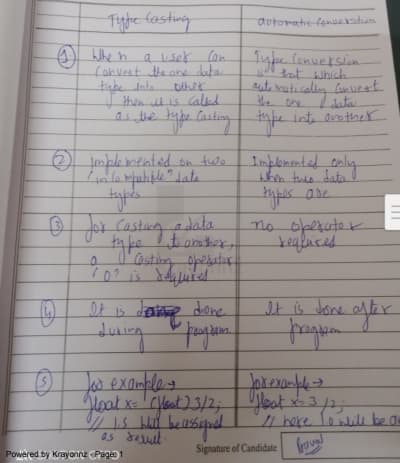 Type Casting
automatic conversion
1
When a user can
convert the one data
type into other
then it is called
as the type Casting
Type Conversion
is that which
automatically convert
the one data
type into another
2
Implemented on two
"incompatible" data
types
Implemented only
when two data
types are
3
for casting a data
type to another,
a casting operator
'()' is required
no operator
required
4
It is done
during program
It is done after
program
5
for example →
float x = (float) 3/2;
// 1.5 will be assigned
as result.
for example →
float x = 3/2;
// here 1.0 will be a
Powered by Krayonnz - Pages 1
Signature of Candidate